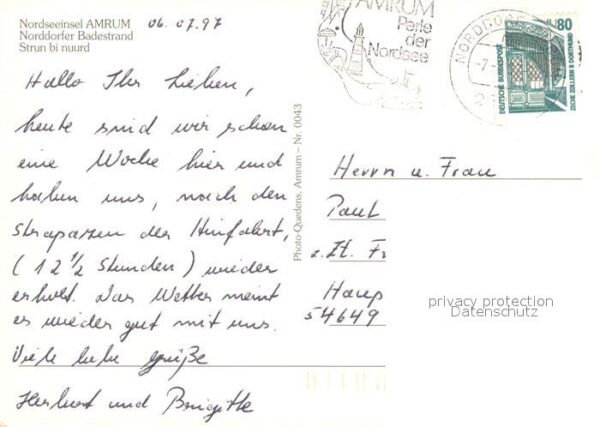 Nordseeinsel AMRUM
Norddorfer Badestrand
Strun bi nuurd
06.07.97
Hallo Ihr Lieben,
heute sind wir schon
eine Woche hier und
haben uns, nach den
Strapazen der Hinfahrt,
(12 ½ Stunden) wieder
erholt. Das Wetter meint
es wieder gut mit uns.
Viele liebe Grüße
Herbert und Brigitte
Photo-Quedens, Amrum – Nr. 0043
AMRUM
Perle
der
Nordsee
NORDDO
80
DEUTSCHE BUNDESPOST
ZECHE ZOLLERN II DORTMUND
Herrn u. Frau
Paul
z. Zt. Fr
Haup
54649
privacy protection
Datenschutz